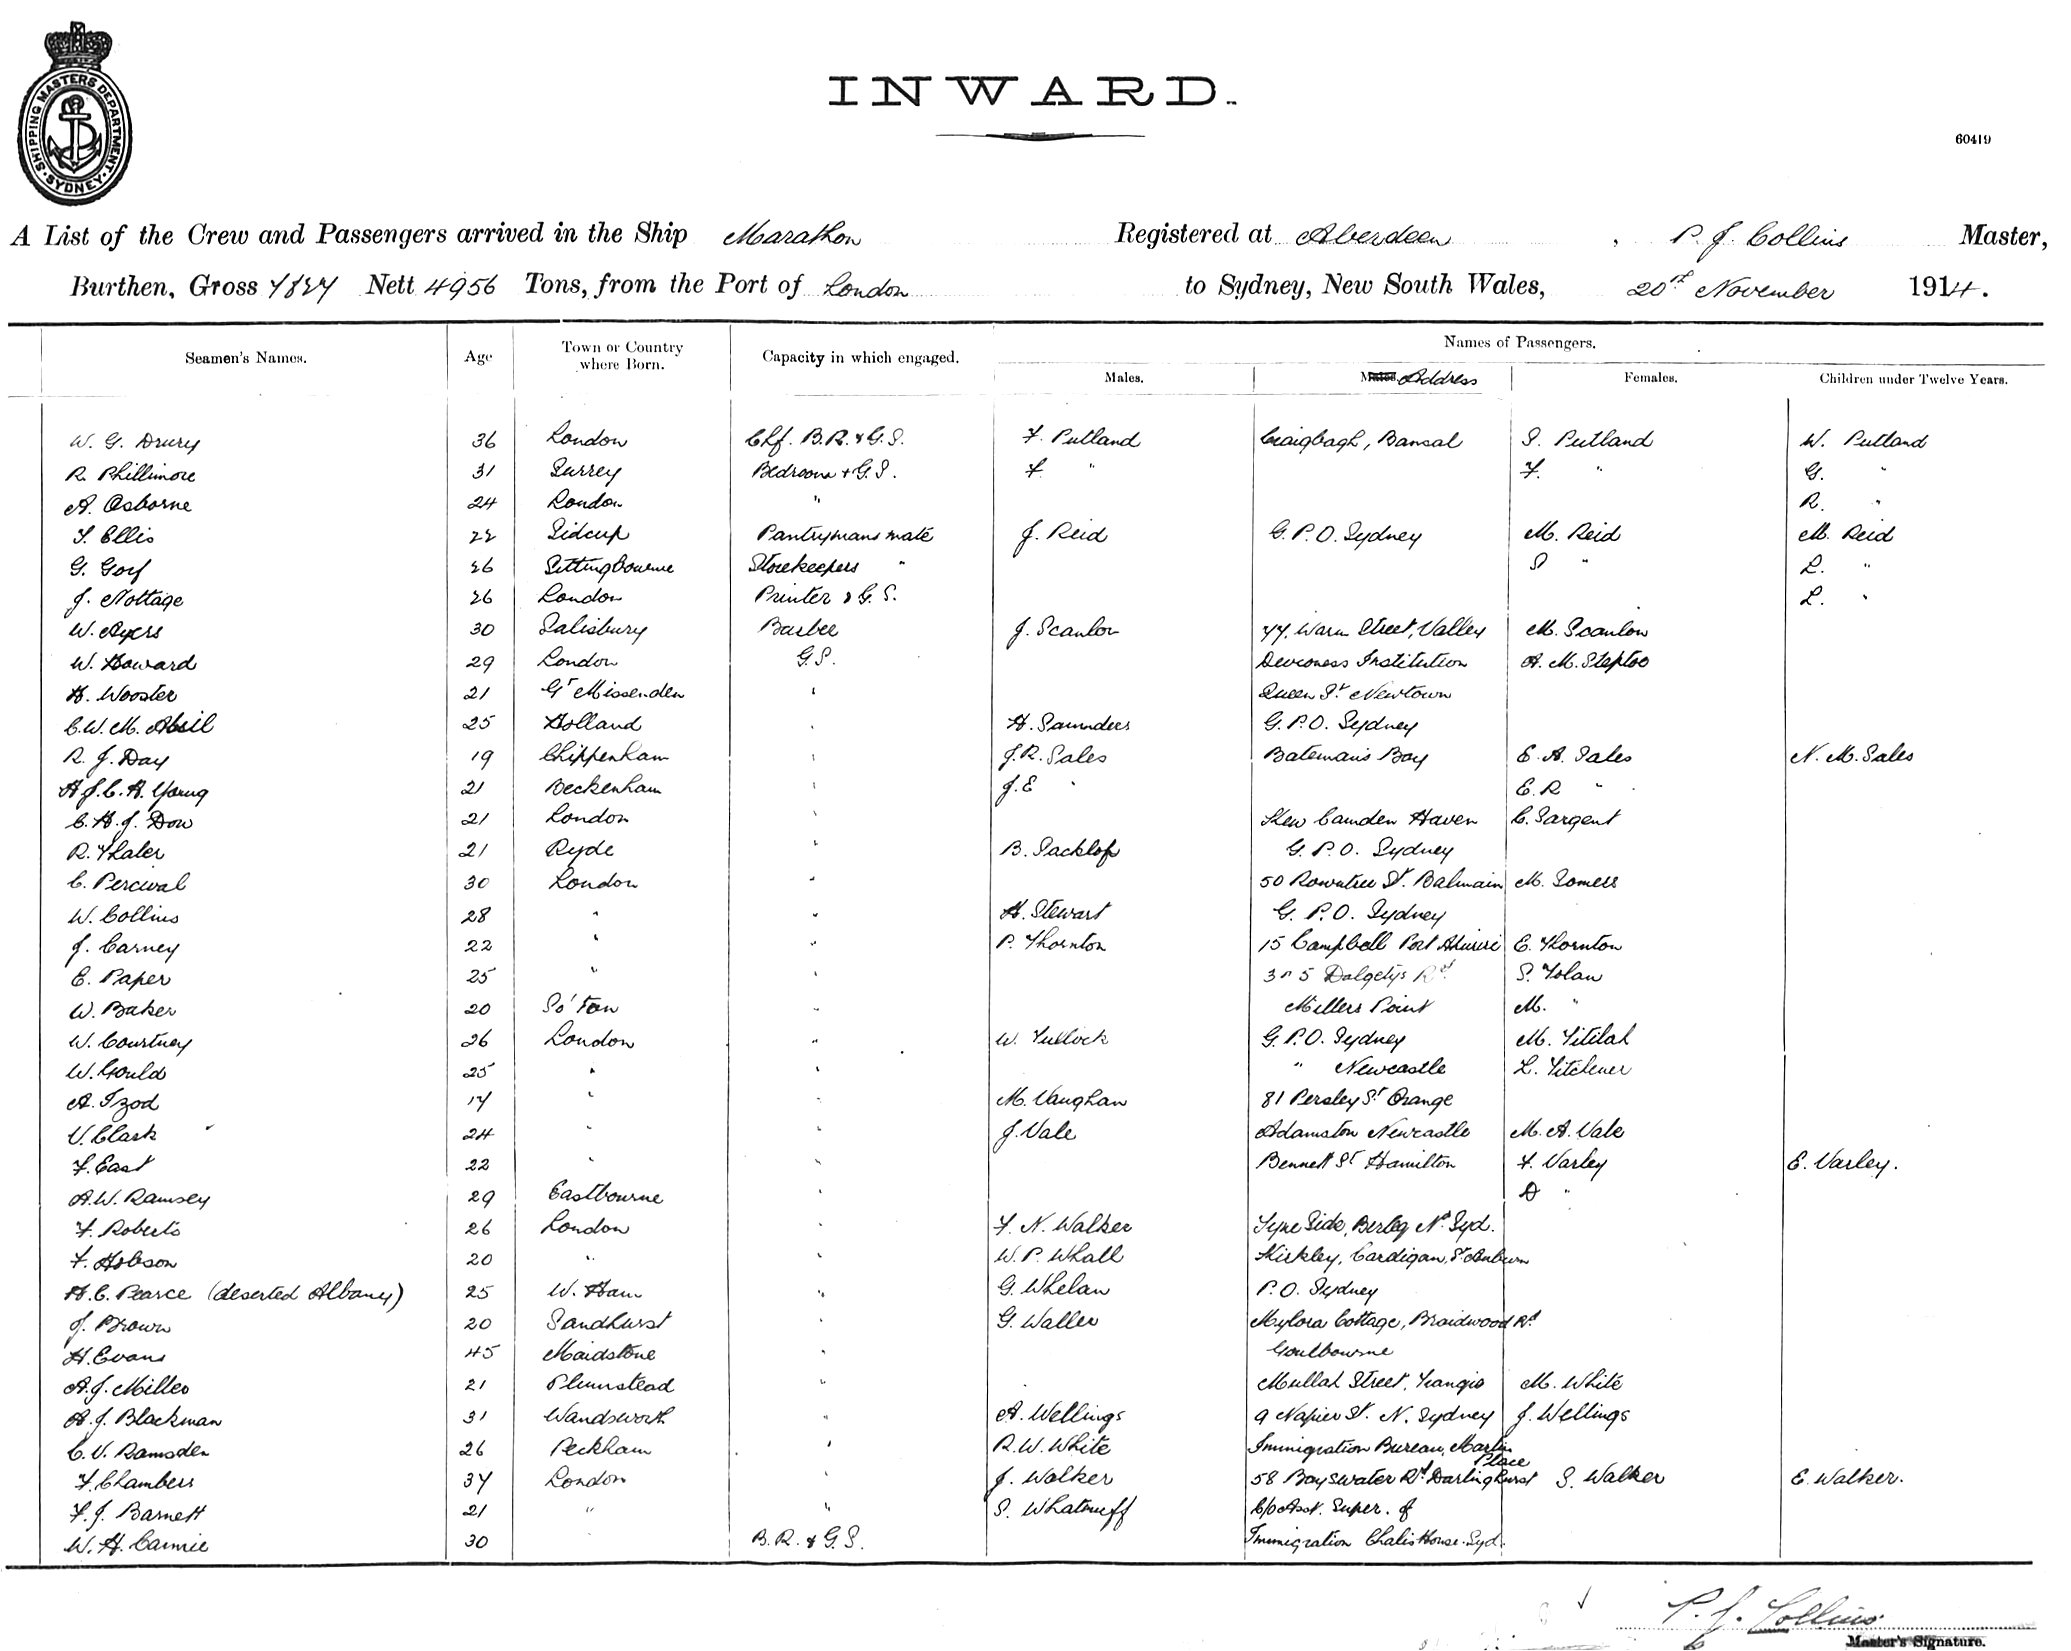 SHIPPING MASTERS DEPARTMENT
SYDNEY
INWARD.
60419
A List of the Crew and Passengers arrived in the Ship Marathon Registered at Aberdeen, P. J. Collins Master,
Burthen, Gross 7827 Nett 4956 Tons, from the Port of London to Sydney, New South Wales, 20th November 1914.
Seamen's Names. Age Town or Country where Born. Capacity in which engaged. Names of Passengers.
Males. Address Females. Children under Twelve Years.
W. G. Drury 36 London Chf. B.R. & G.S. F. Putland Bansal S. Putland W. Putland
R. Phillimore 31 Surrey Bedrooms + G.S. F. " F. " G. "
A. Osborne 24 London " R. "
S. Ellis 22 Sidcup Pantrymans mate J. Reid G.P.O. Sydney M. Reid M. Reid
G. 26 Sittingbourne Storekeepers " S " L. "
J. Nottage 26 London Printer & G.S. L. "
W. Ayers 30 Salisbury Barber J. Scanlon 77, Warm Street, Valley M. Scanlon
W. Howard 29 London G.S. Deaconess Institution A. M. Steptoe
H. Wooster 21 Gt Missenden " Queen St Newtown
C. W. M. Absil 25 Holland " H. Saunders G.P.O. Sydney
R. J. Day 19 Chippenham " J. R. Sales Batemans Bay E. A. Sales N. M. Sales
A J. C. R. Young 21 Beckenham " J. E " E. R "
C. H. J. Dow 21 London " Kew Camden Haven C. Sargent
R. Thaler 21 Ryde " B. G.P.O. Sydney
C. Percival 30 London " 50 Rowntree St. Balmain M. Somers
W. Collins 28 " " H. Stewart G.P.O. Sydney
J. Carney 22 " " P. Thornton 15 Campbell Port Ahuriri E. Thornton
E. Paper 25 " " 3 n 5 Dalgetys Rd. S. Tolan
W. Baker 20 So'ton " Millers Point M. "
W. Courtney 26 London " W. Tullock G.P.O. Sydney M. Titilah
W. Gould 25 " " " Newcastle L. Titchener
A. Izod 17 " " M. Vaughan 81 Persley St Orange
V. Clark 24 " " J. Vale Adamston Newcastle M. A. Vale
F. East 22 " " Bennett St Hamilton F. Varley E. Varley.
A. W. Ramsey 29 Eastbourne " D "
F. Roberts 26 London " F. N. Walker Tyne Side, Nth Syd.
F. Hobson 20 " " W. P. Whall Kirkley, Cardigan, St Auburn
H. C. Pearce (deserted Albany) 25 W. Ham " G. Whelan P.O. Sydney
J. Brown 20 Sandhurst " G. Waller Mylora Cottage, Braidwood Rd
H. Evans 45 Maidstone " Goulbourne
A. J. Miller 21 Plumstead " Mullah Street, M. White
A. J. Blackman 31 Wandsworth " A. Wellings 9 Napier St. N. Sydney J. Wellings
C. V. Ramsden 26 Peckham " R. W. White Immigration Bureau, Martin Place
F. Chambers 37 London " J. Walker 58 Bayswater Rd Darlinghurst S. Walker E. Walker.
F. J. Barnett 21 " " S. C/o Asst. Super. of
W. H. Cannie 30 B.R. & G.S. Immigration Chalis House. Syd.
P. J. Collins
Master's Signature.